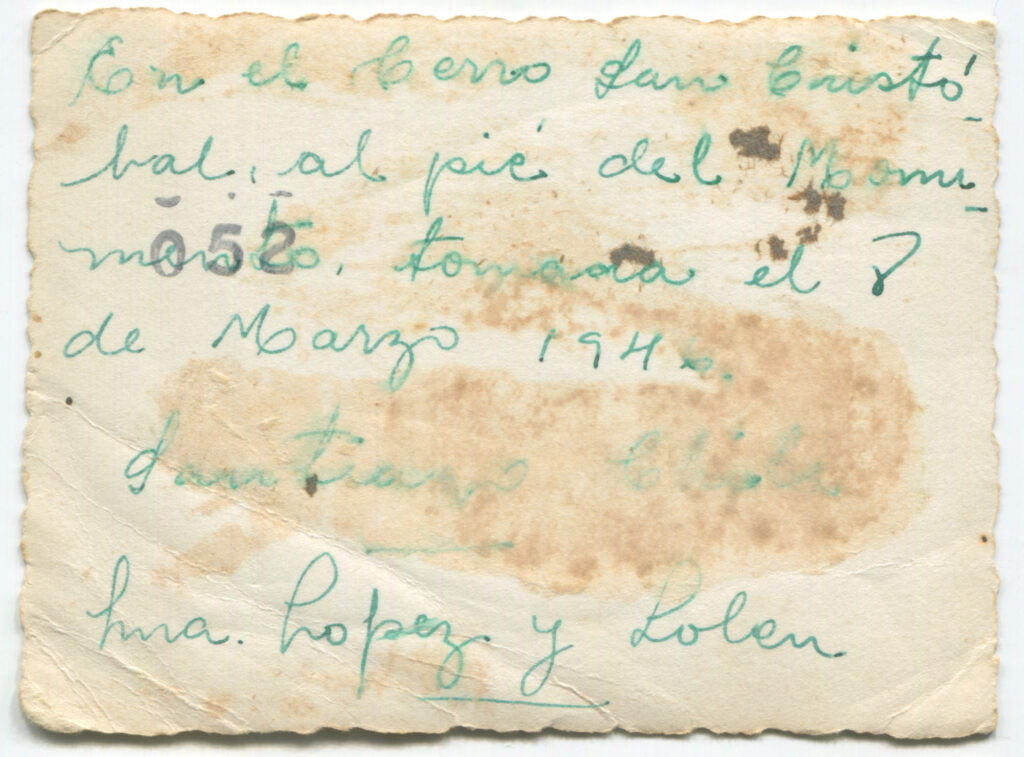 En el Cerro San Cristó-
bal, al pié del Monu-
052
mento, tomada el 8
de Marzo 1946.
Santiago Chile
hna. Lopez y